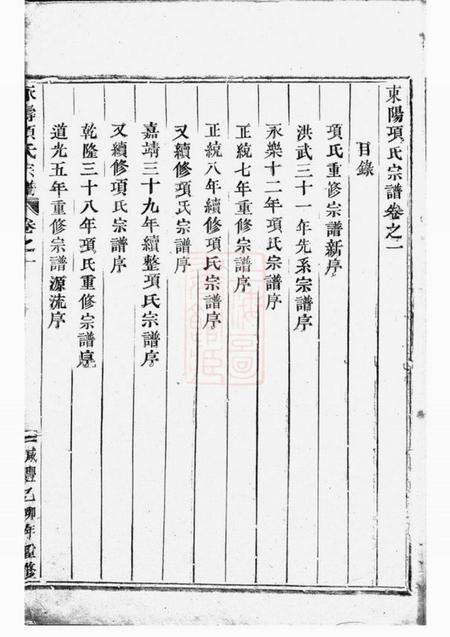 東陽項氏宗譜卷之一
目錄
項氏重修宗譜新序
洪武三十一年先系宗譜序
永樂十二年項氏宗譜序
正統七年重修宗譜序
正統八年續修項氏宗譜序
又續修項氏宗譜序
嘉靖三十九年續整項氏宗譜序
又續修項氏宗譜序
乾隆三十八年項氏重修宗譜序
道光五年重修宗譜源流序
項氏宗譜 卷之一 咸豐乙卯年重修